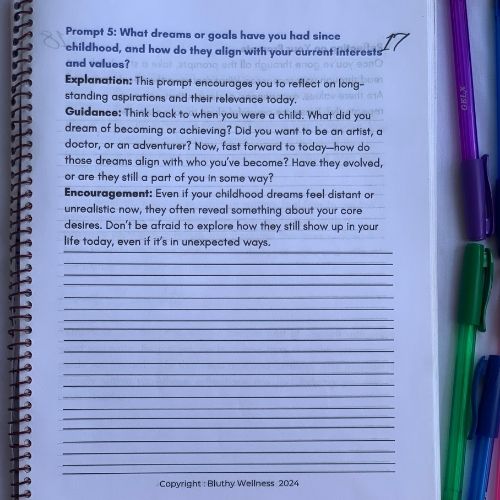 Prompt 5: What dreams or goals have you had since
childhood, and how do they align with your current interests
and values?
17
Explanation: This prompt encourages you to reflect on long-
standing aspirations and their relevance today.
Guidance: Think back to when you were a child. What did you
dream of becoming or achieving? Did you want to be an artist, a
doctor, or an adventurer? Now, fast forward to today—how do
those dreams align with who you've become? Have they evolved,
or are they still a part of you in some way?
Encouragement: Even if your childhood dreams feel distant or
unrealistic now, they often reveal something about your core
desires. Don't be afraid to explore how they still show up in your
life today, even if it's in unexpected ways.
Copyright : Bluthy Wellness 2024